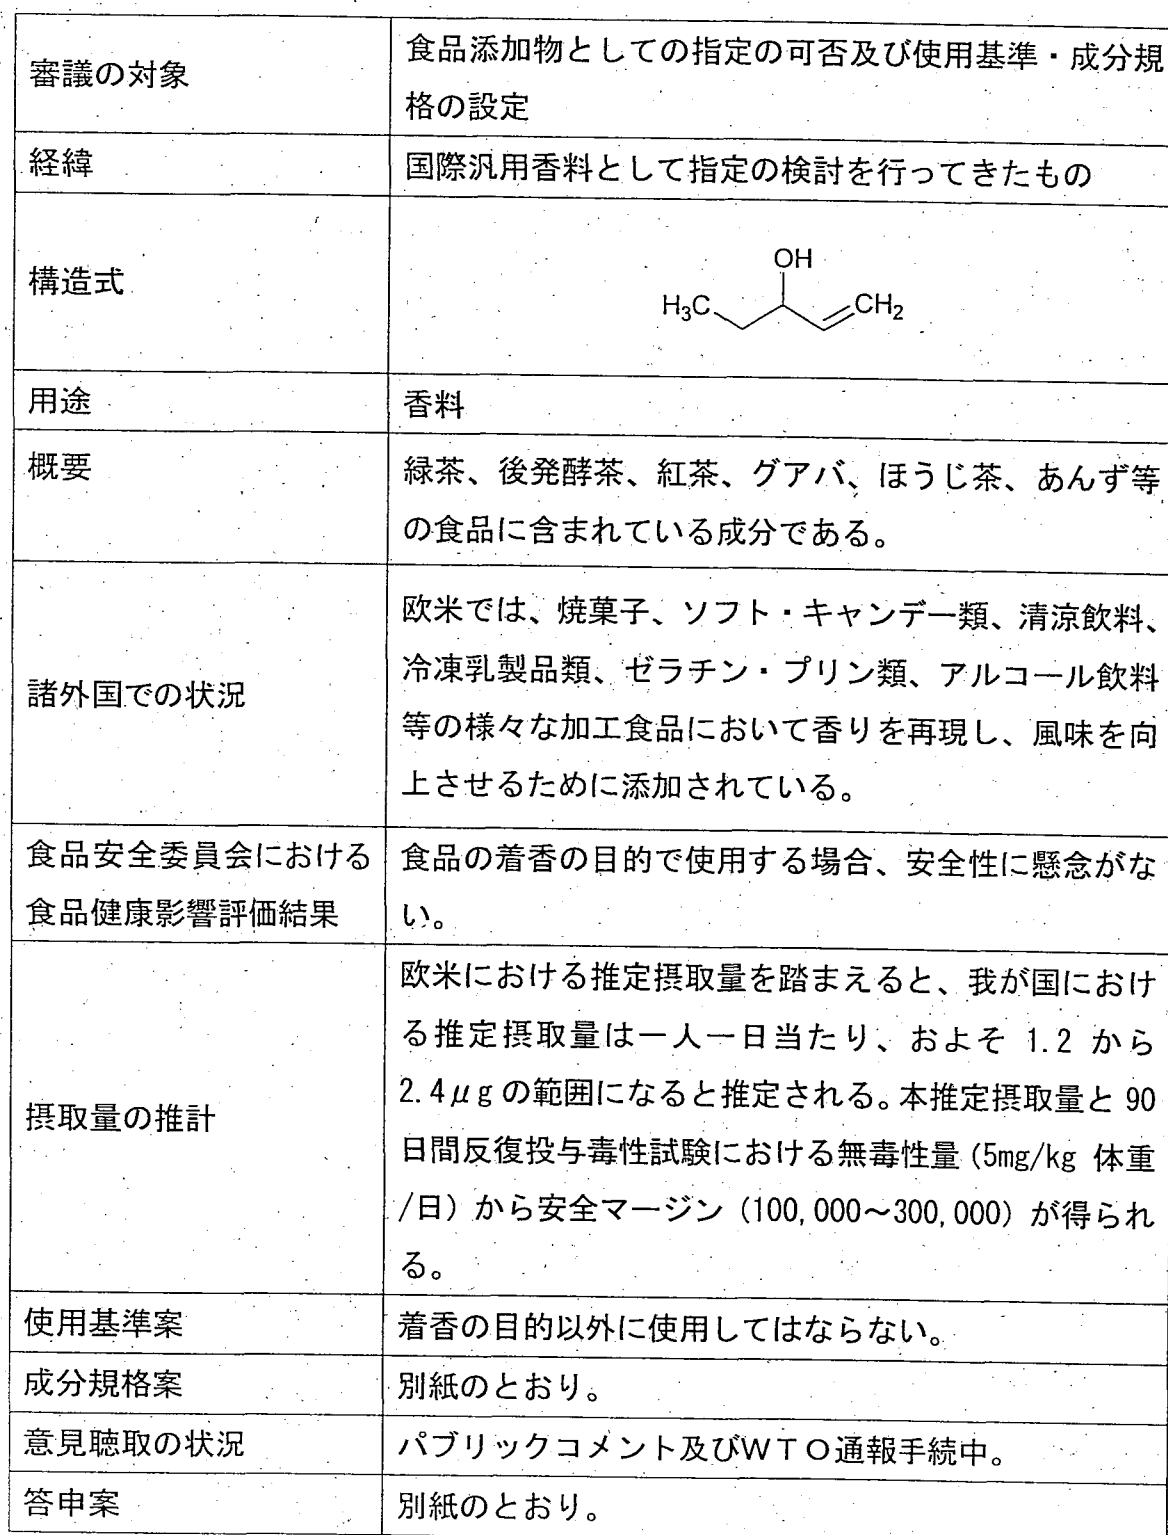 審議の対象
食品添加物としての指定の可否及び使用基準・成分規
格の設定
経緯
国際汎用香料として指定の検討を行ってきたもの
構造式
OH
H₃C
CH₂
用途
香料
概要
緑茶、後発酵茶、紅茶、グアバ、ほうじ茶、あんず等
の食品に含まれている成分である。
諸外国での状況
欧米では、焼菓子、ソフト・キャンデー類、清涼飲料、
冷凍乳製品類、ゼラチン・プリン類、アルコール飲料
等の様々な加工食品において香りを再現し、風味を向
上させるために添加されている。
食品安全委員会における
食品健康影響評価結果
食品の着香の目的で使用する場合、安全性に懸念がな
い。
摂取量の推計
欧米における推定摂取量を踏まえると、我が国におけ
る推定摂取量は一人一日当たり、およそ 1.2 から
2.4μgの範囲になると推定される。本推定摂取量と 90
日間反復投与毒性試験における無毒性量 (5mg/kg 体重
/日) から安全マージン (100,000～300,000) が得られ
る。
使用基準案
着香の目的以外に使用してはならない。
成分規格案
別紙のとおり。
意見聴取の状況
パブリックコメント及びＷＴＯ通報手続中。
答申案
別紙のとおり。